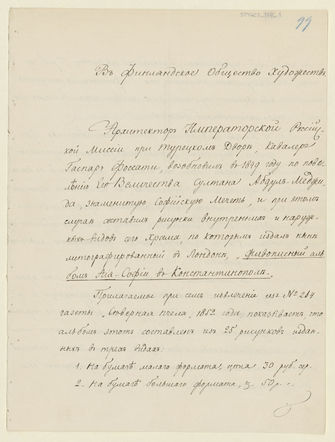 99
Въ Финландское Общество Художествъ
Архитекторъ Императорской Россій
ской Миссіи при Турецкомъ Дворѣ, Кавалеръ
Гаспаръ Фоссати, возобновивъ въ 1849 году по пове
лѣнію Его Величества Султана Абдулъ-Меджи
да, знаменитую Софійскую Мечеть, и при этомъ
случаѣ составилъ рисунки внутреннихъ и наруж
ныхъ видовъ сего Храма, по которымъ издалъ нынѣ
литографированный въ Лондонѣ, Живописный аль
бомъ Аіа-Софіи въ Константинополѣ.
Прилагаемое при семъ извлеченіе изъ № 284
газеты Сѣверная пчела, 1852 года, показываетъ что
альбомъ этотъ составленъ изъ 25 рисунковъ издан
ныхъ въ двухъ видахъ:
1. На бумагѣ малаго формата, цѣна 30 руб. сер.
2. На бумагѣ большаго формата, " 50 р. -